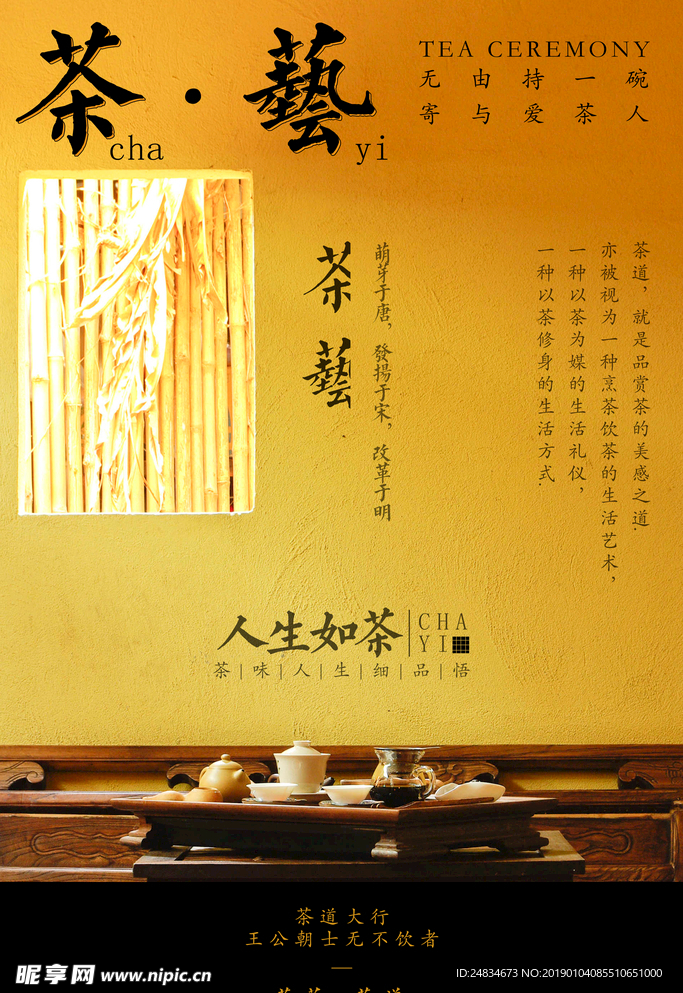 茶·藝
cha yi
TEA CEREMONY
无由持一碗
寄与爱茶人
茶道，就是品赏茶的美感之道.
亦被视为一种烹茶饮茶的生活艺术，
一种以茶为媒的生活礼仪，
一种以茶修身的生活方式.
茶藝
萌芽于唐，發揚于宋，改革于明
人生如茶
CHA
YI
茶|味|人|生|细|品|悟
茶道大行
王公朝士无不饮者
—
昵享网 www.nipic.cn
ID:24834673 NO:20190104085510651000